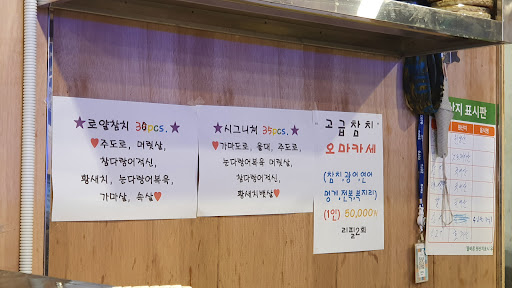 ★로얄참치 30pcs.★
♥주도로, 머릿살,
참다랑어적신,
황새치, 눈다랑어복육,
가마살, 속살♥
★시그니처 35pcs.★
♥가마도로, 울대, 주도로,
눈다랑어복육 머릿살,
참다랑어적신,
황새치뱃살♥
고급참치
오마카세
(참치,광어,연어
멍게,전복,복지리)
(1인) 50,000₩
리필2회
산지 표시판